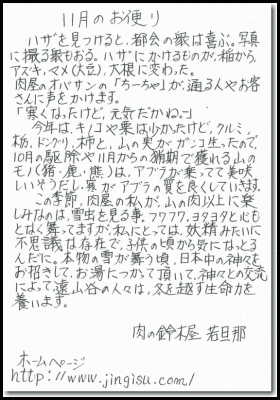 11月のお便り
ハザを見つけると、都会の衆は喜ぶ。写真
に撮る衆もおる。ハザにかけるものが、稲から
アズキ、マメ(大豆)、大根に変わった。
肉屋のオバサンの「ちーちゃ」が通る人やお客
さんに声をかけます。
「寒くなったけど、元気だかね。」
今年は、キノコや栗は少かたけど、クルミ、
栃、ドングリ、柿と、山の実がガンコ生ったので、
10月の駆除や11月からの猟期で獲れる山の
モノ(猪・鹿・熊)は、アブラが乗ってて美味
しいそうだし、寒がアブラの質を良くしていきます。
この季節、肉屋の私が、山の肉以上に楽
しみなのは、雪虫を見る事。フワフワ、ヨタヨタと心も
となく舞ってますが、私にとっては、妖精みたいに
不思議な存在で、子供の頃から気になっとる
んだに。本物の雪が舞う頃、日本中の神々を
お招きして、お湯につかって頂いて、神々との交流
によって遠山谷の人々は、冬を越す生命力を
養います。
肉の鈴木屋 若旦那
ホームページ
http://www.jingisu.com/